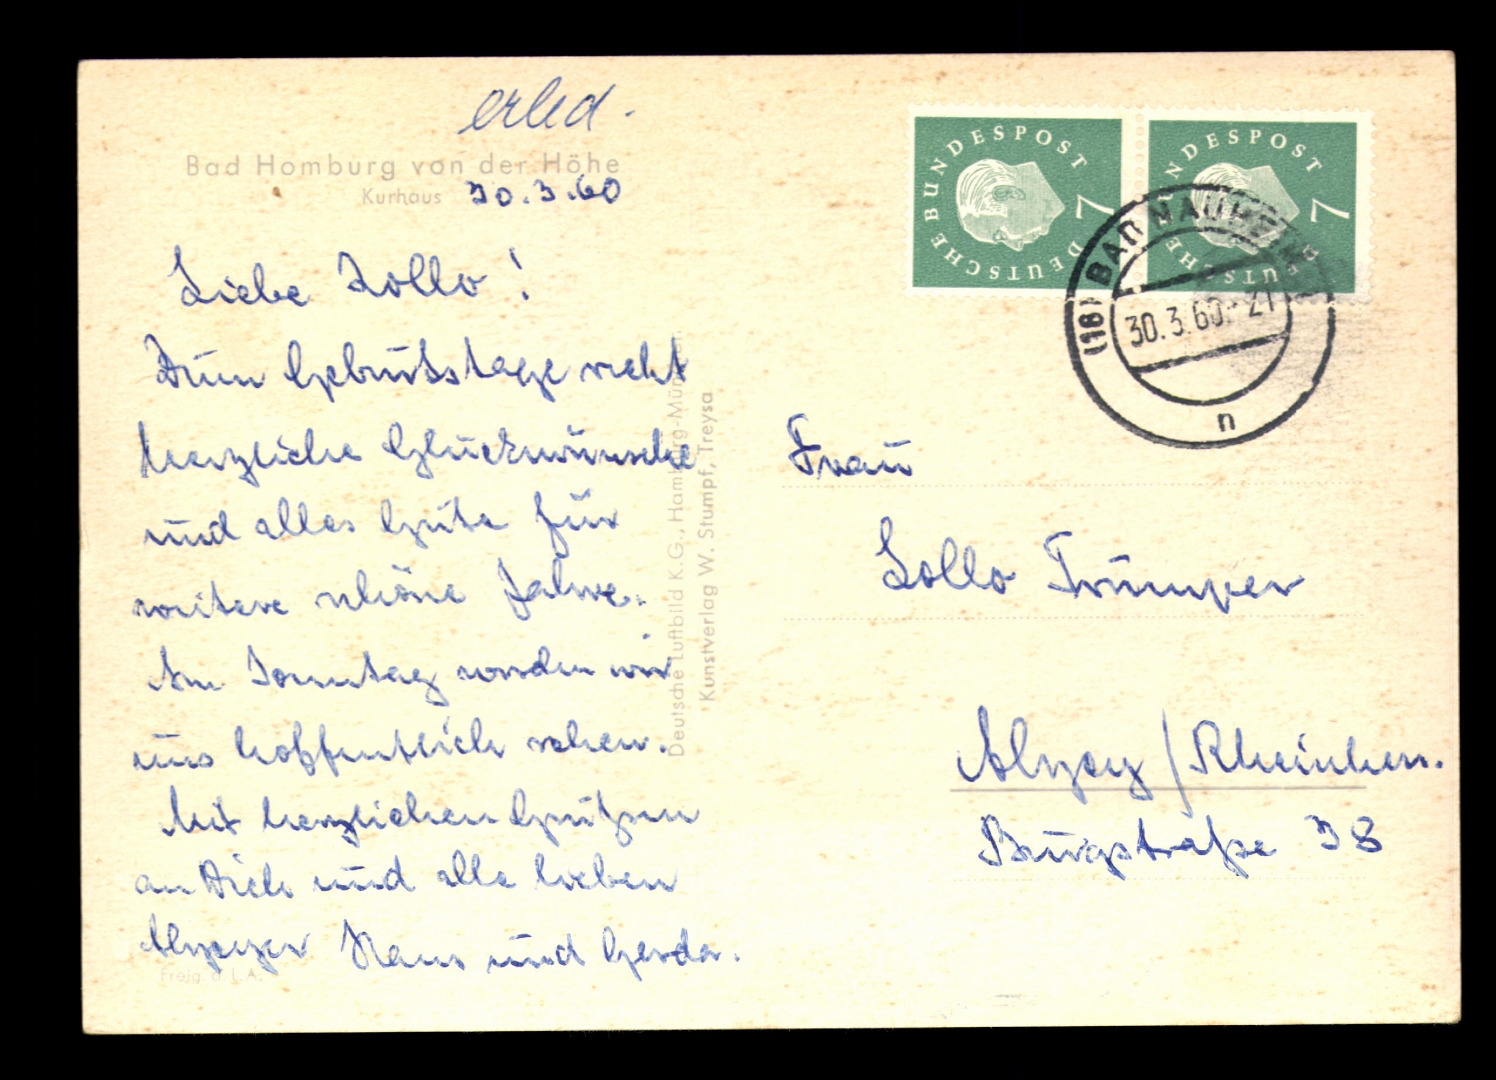 erled.
Bad Homburg von der Höhe
Kurhaus 30.3.60
Liebe Lollo!
Zum Geburtstage recht
herzliche Glückwünsche
und alles Gute für
weitere schöne Jahre.
Am Sonntag werden wir
uns hoffentlich sehen.
Mit herzlichen Grüßen
an Dich und alle lieben
Alzeyer Hans und Gerda.
Freig. d. L.A.
Deutsche Luftbild K.G., Hamburg-Mün
Kunstverlag W. Stumpf, Treysa
DEUTSCHE BUNDESPOST 7
DEUTSCHE BUNDESPOST 7
(16) BAD NAUHEIM 1
30.3.60.-21
n
Frau
Lollo Trümper
Alzey / Rheinhess.
Burgstraße 38